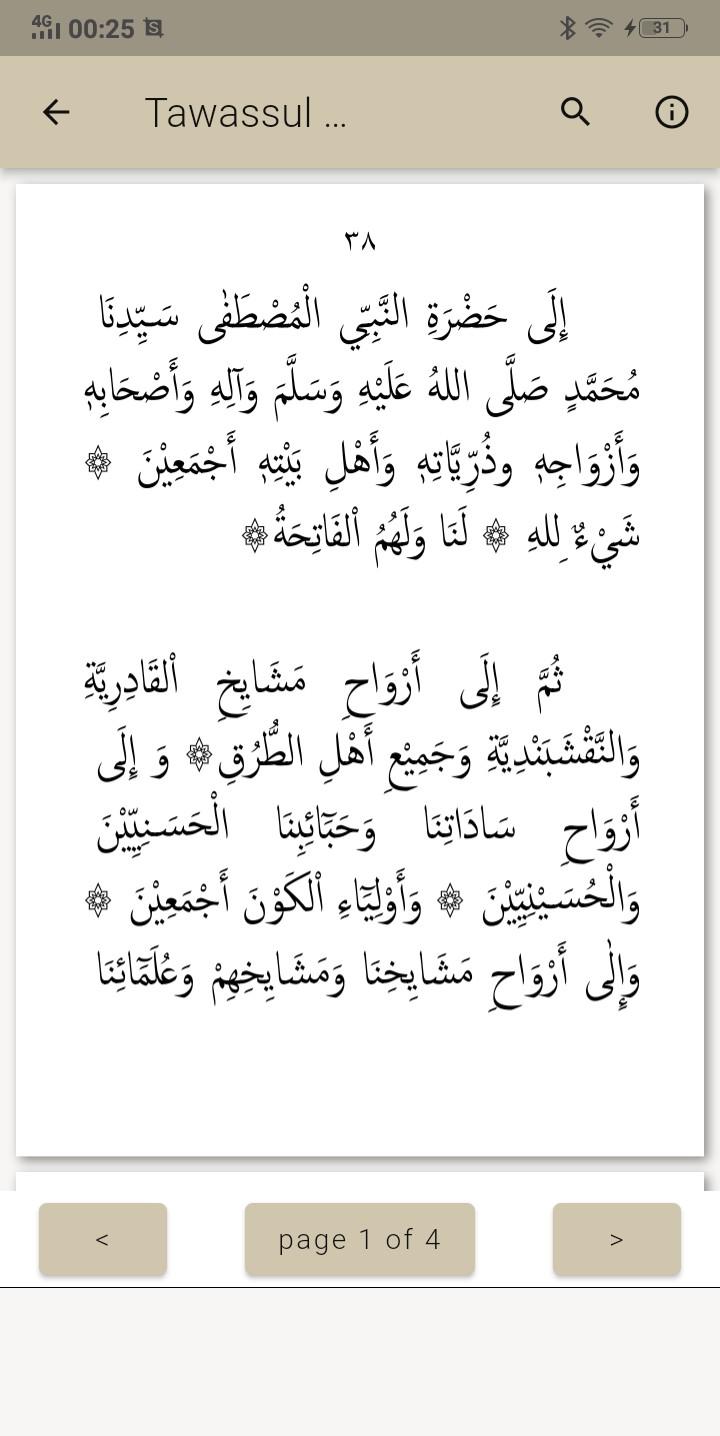 4G 00:25 31
Tawassul ...
٣٨
إِلَى حَضْرَةِ النَّبِيِّ الْمُصْطَفٰى سَيِّدِنَا
مُحَمَّدٍ صَلَّى اللهُ عَلَيْهِ وَسَلَّمَ وَآلِهِ وَأَصْحَابِهٖ
وَأَزْوَاجِهٖ وذُرِّيَّاتِهٖ وَأَهْلِ بَيْتِهٖ أَجْمَعِيْنَ ۞
شَيْءٌ لِلهِ ۞ لَنَا وَلَهُمُ ٱلفَاتِحَةُ ۞
ثُمَّ إِلَى أَرْوَاحِ مَشَايِخِ ٱلقَادِرِيَّةِ
وَالنَّقْشَبَنْدِيَّةِ وَجَمِيْعِ أَهْلِ الطُّرُقِ ۞ وَ إِلَى
أَرْوَاحِ سَادَاتِنَا وَحَبَآئِبِنَا الْحَسَنِيِّيْنَ
وَالْحُسَيْنِيِّيْنَ ۞ وَأَوْلِيَآءِ ٱلكَوْنَ أَجْمَعِيْنَ ۞
وَإِلٰى أَرْوَاحِ مَشَايِخِنَا وَمَشَايِخِهِمْ وَعُلَمَآئِنَا
< page 1 of 4 >